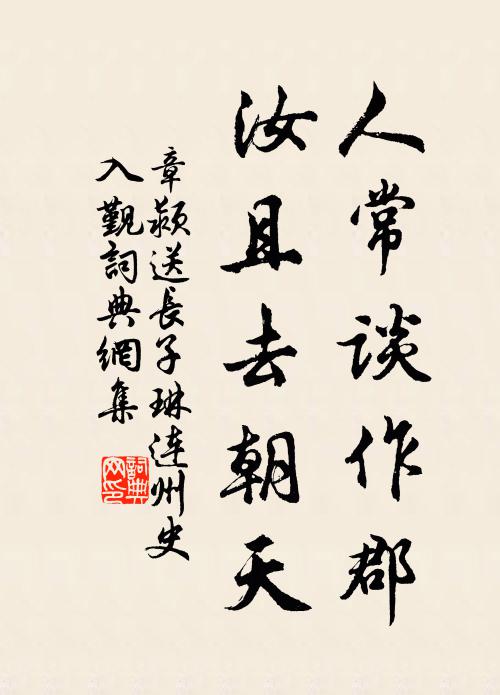 人常談作郡
汝且去朝天
章潁送長子琳連州史
入覲詞典網集
詞典
网印